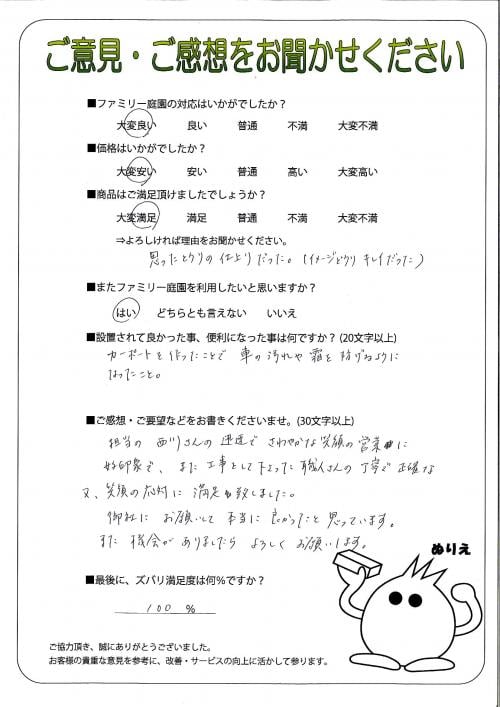 ご意見・ご感想をお聞かせください
■ファミリー庭園の対応はいかがでしたか？
大変良い 良い 普通 不満 大変不満
■価格はいかがでしたか？
大変安い 安い 普通 高い 大変高い
■商品はご満足頂けましたでしょうか？
大変満足 満足 普通 不満 大変不満
⇒よろしければ理由をお聞かせください。
思ったとうりの仕上りだった。(イメージどうり キレイだった)
■またファミリー庭園を利用したいと思いますか？
はい どちらとも言えない いいえ
■設置されて良かった事、便利になった事は何ですか？(20文字以上)
カーポートを作ったことで 車の汚れや霜を防げるように
なったこと。
■ご感想・ご要望などをお書きくださいませ。(30文字以上)
担当の 西川さんの 迅速で さわやかな笑顔の営業に
好印象で、また 工事をして下さった 職人さんの 丁寧で 正確な
又、笑顔の応対に 満足致しました。
御社に お願いして 本当に 良かったと 思っています。
また 機会が ありましたら よろしく お願いします。
ぬりえ
■最後に、ズバリ満足度は何％ですか？
100 ％
ご協力頂き、誠にありがとうございました。
お客様の貴重な意見を参考に、改善・サービスの向上に活かして参ります。